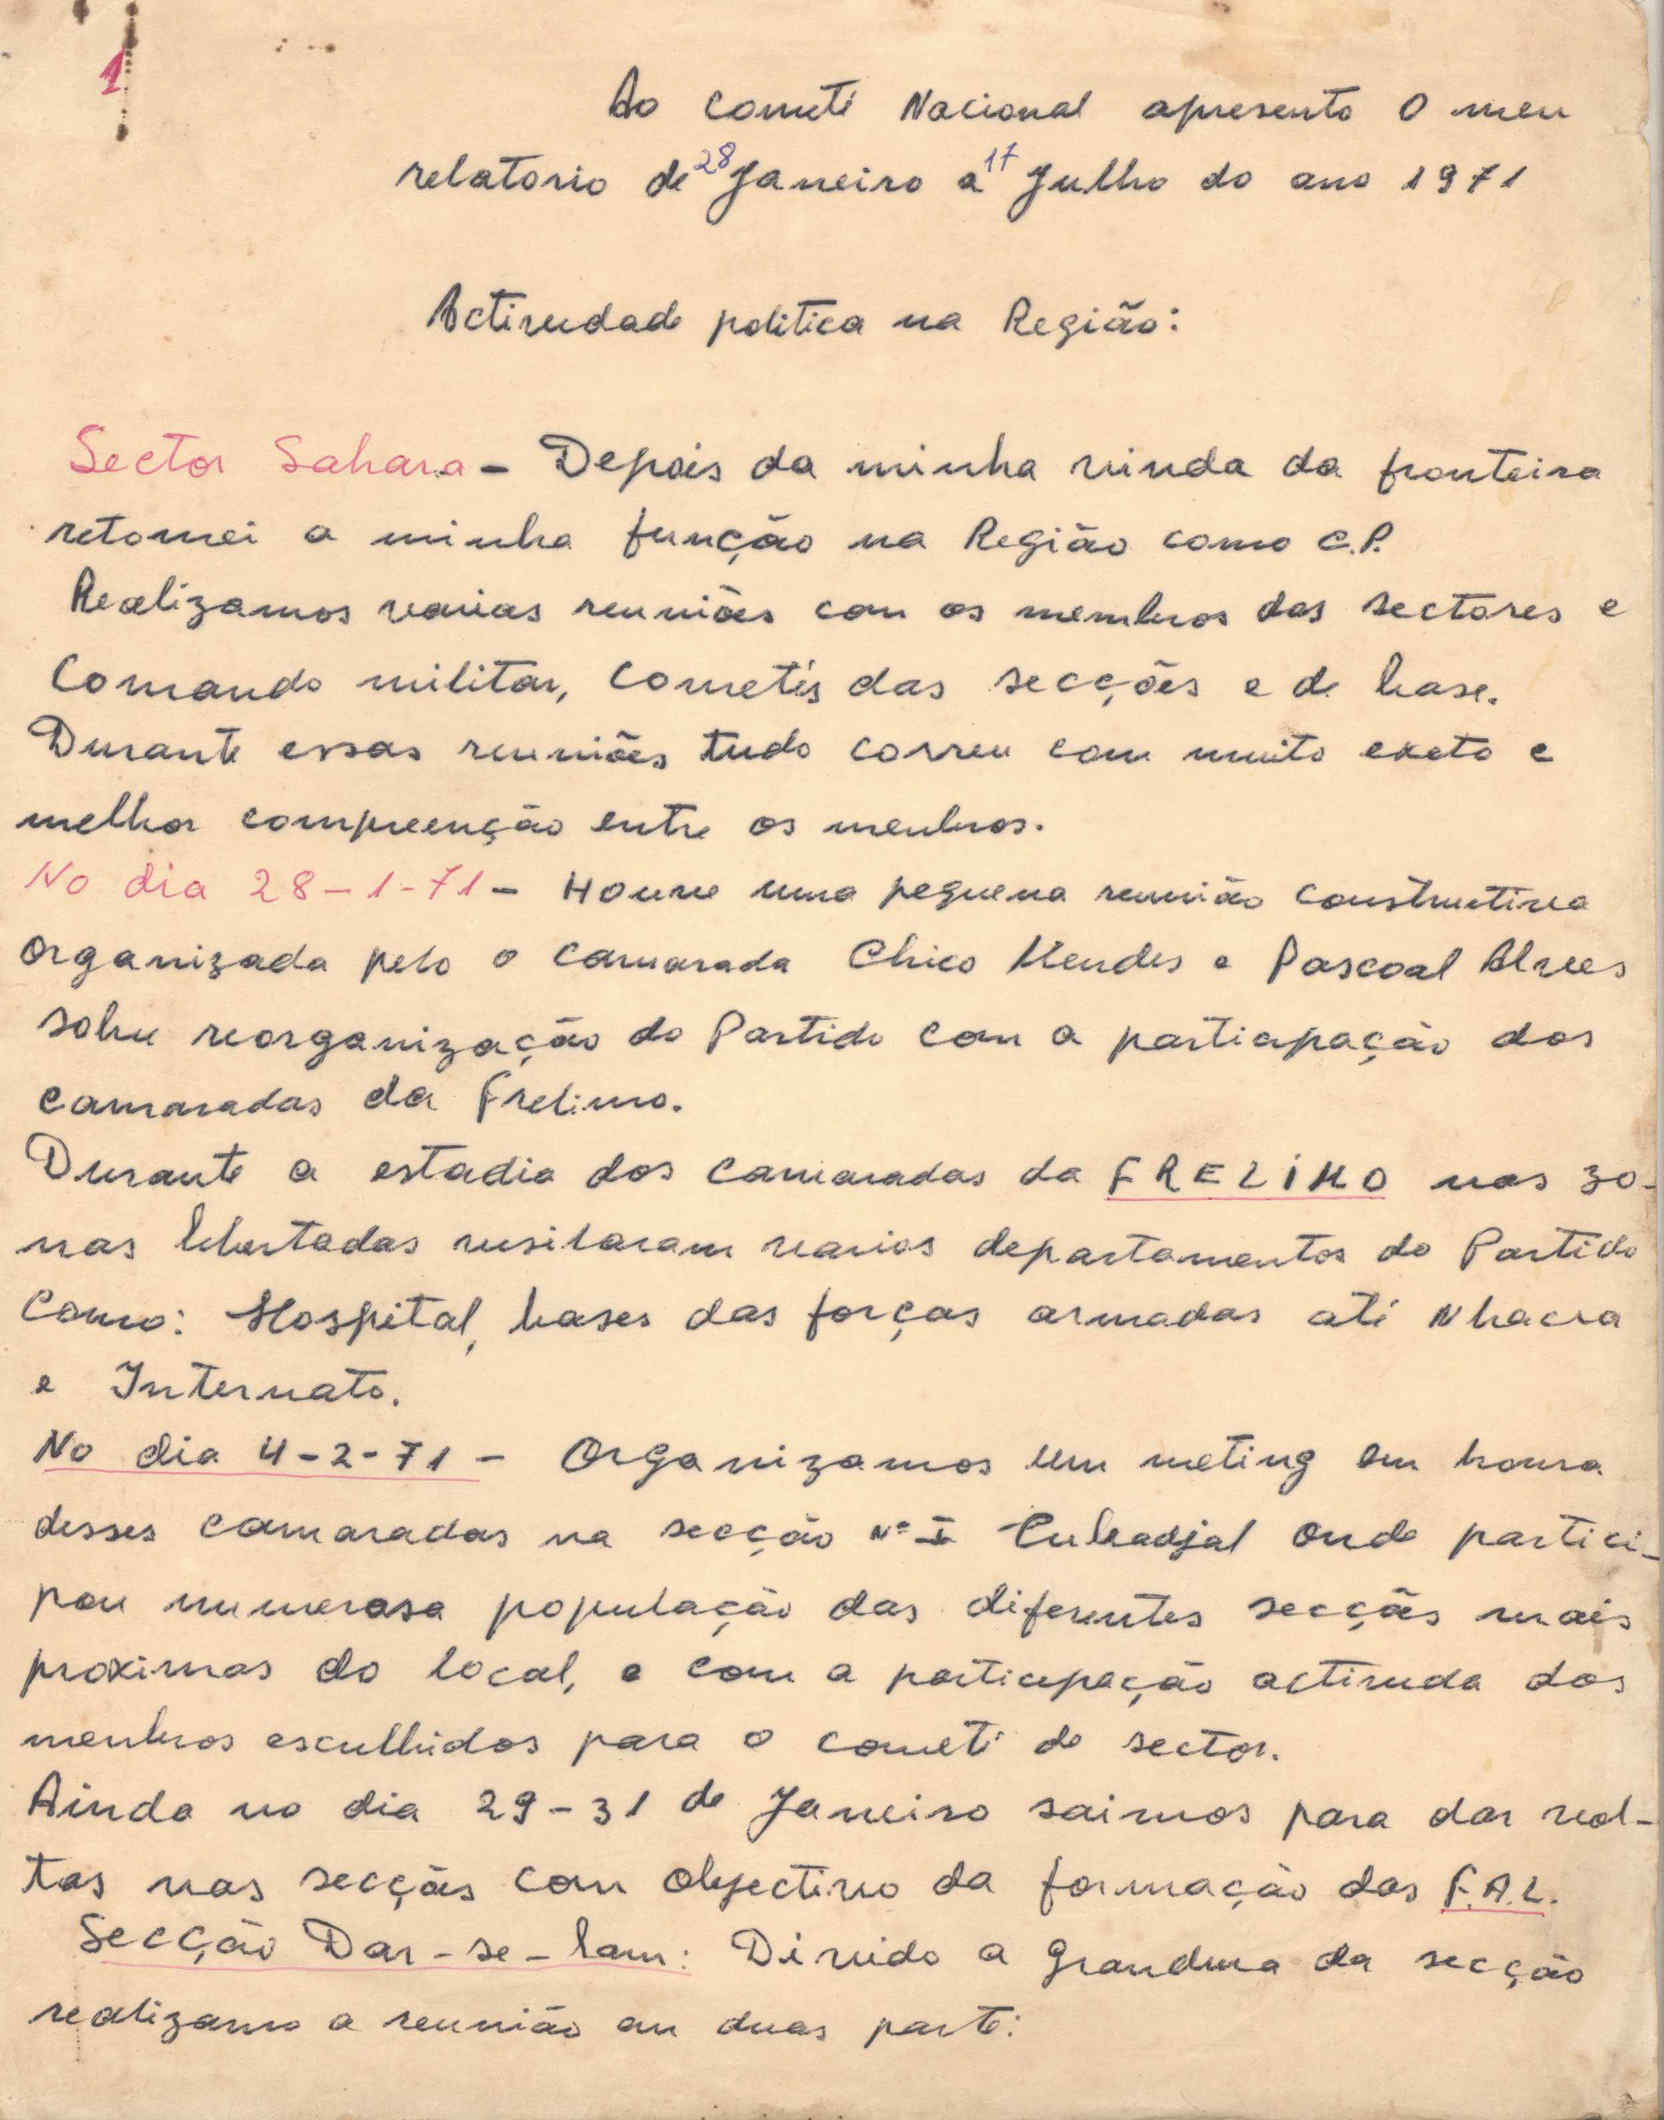 1
Ao cometé Nacional apresento o meu
relatorio de 28 Janeiro a 17 Julho do ano 1971
Activudade politica na Região:
Sector Sahara - Depois da minha vinda da fronteira
retomei a minha função na Região como C.P.
Realizamos varias reuniões com os membros dos sectores e
Comando militar, cometés das secções e de base.
Durante essas reuniões tudo correu com muito exeto e
melhor compreenção entre os menbros.
No dia 28-1-71 - Houve uma pequena reunião constructiva
organizada pelo o camarada Chico Mendes e Pascoal Alves
sobre reorganização do Partido com a participação dos
camaradas da Frelimo.
Durante a estadia dos camaradas da FRELIMO nas zo-
nas libertadas visitaram varios departamentos do Partido
Como: Hospital, bases das forças armadas até Nhacra
e Internato.
No dia 4-2-71 - Organizamos um meting em honra
desses camaradas na secção Nº I Cubadjal onde partici-
pou numerosa população das diferentes secçãs mais
proximas do local, e com a participação activuda dos
menbros esculhidos para o cometé do sector.
Ainda no dia 29-31 de Janeiro saimos para dar vol-
tas nas secçãs com objectivo da formação das F.A.L.
Secção Dar-se-lam: Divido a grandura da secção
realizamo a reunião em duas parte: